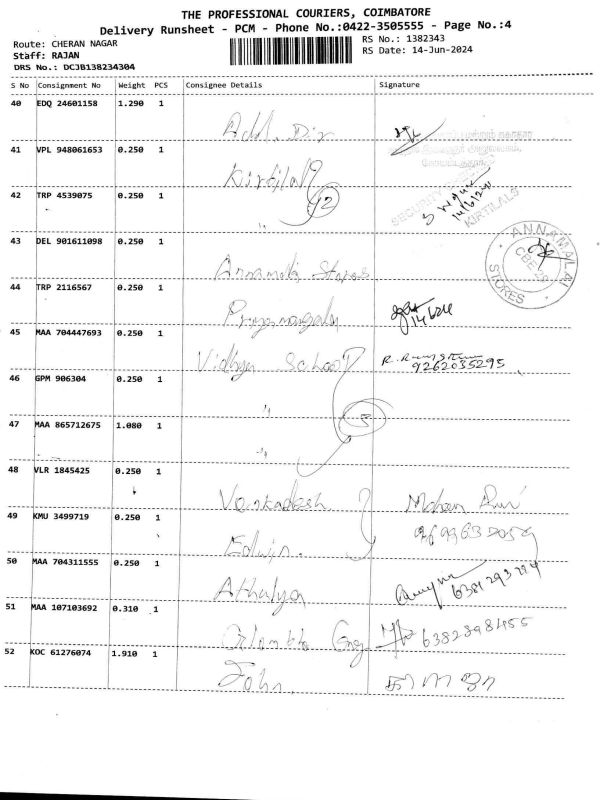 THE PROFESSIONAL COURIERS, COIMBATORE
Delivery Runsheet - PCM - Phone No.:0422-3505555 - Page No.:4
Route: CHERAN NAGAR
RS No.: 1382343
Staff: RAJAN
RS Date: 14-Jun-2024
DRS No.: DCJB138234304
S No Consignment No Weight PCS Consignee Details Signature
40 EDQ 24601158 1.290 1
Addl. Dir
41 VPL 948061653 0.250 1
Kirtilal
42 TRP 4539075 0.250 1
2
SECURITY
KIRTILALS
43 DEL 901611098 0.250 1
Annamalai Stores
ANNAMALAI
STORES
44 TRP 2116567 0.250 1
14/6/24
45 MAA 704447693 0.250 1
Vidhya School
9262035295
46 GPM 906304 0.250 1
47 MAA 865712675 1.080 1
3
48 VLR 1845425 0.250 1
Venkadesh
49 KMU 3499719 0.250 1
Edwin
50 MAA 704311555 0.250 1
Athulya
6381293294
51 MAA 107103692 0.310 1
Eng
6382398455
52 KOC 61276074 1.910 1
John.